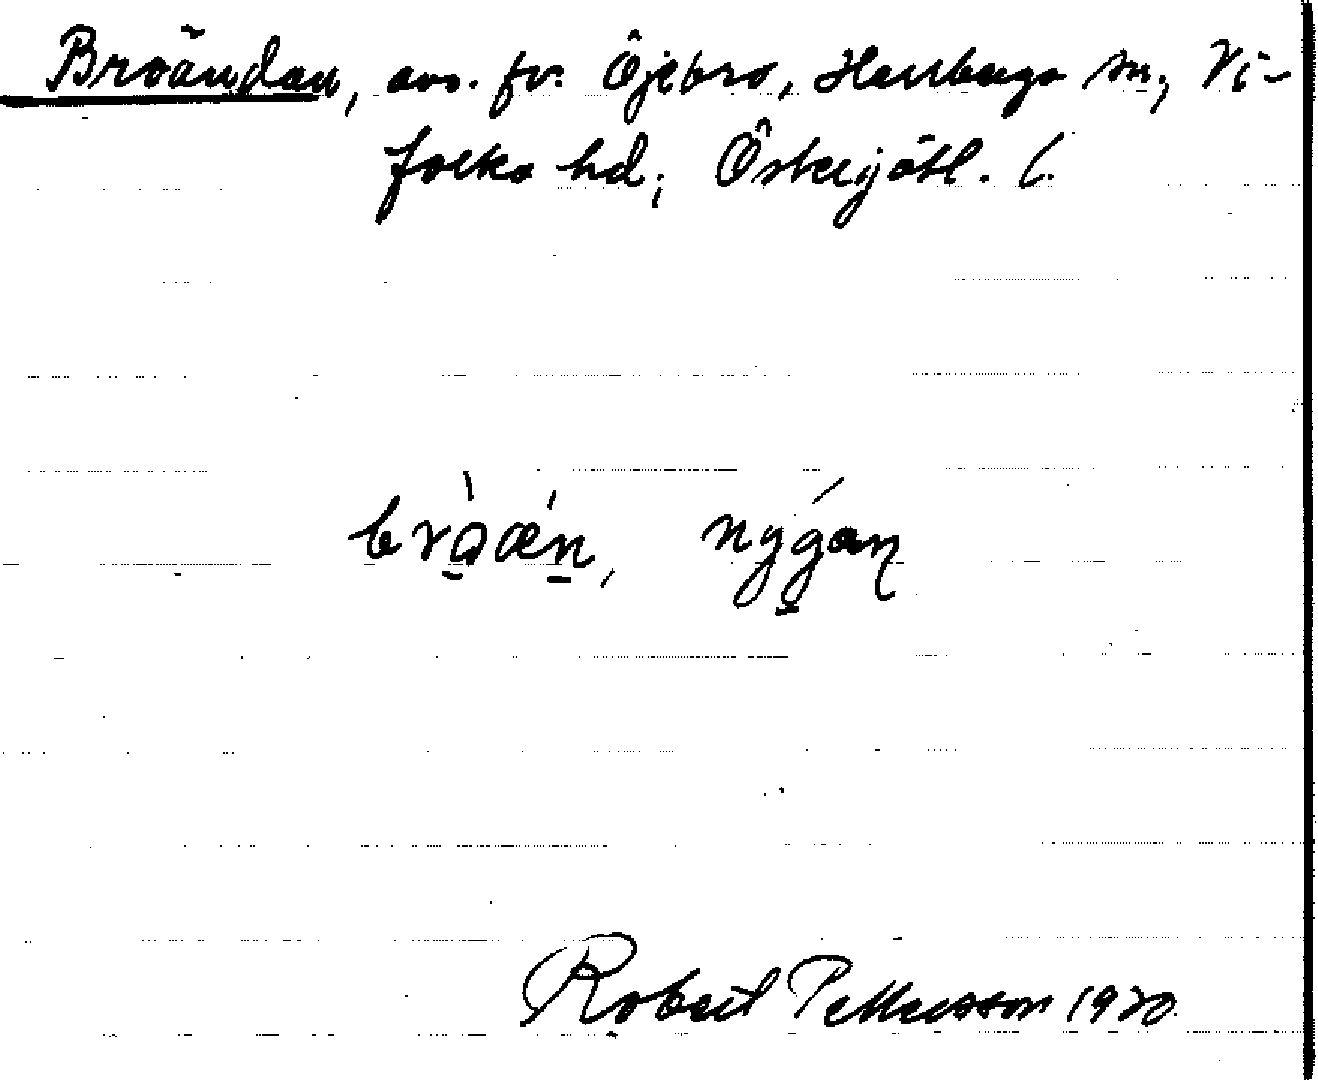 Broändan, avs. fr. Öjebro, Herrberga sn, Vi-
folka hd, Östergötl. l.
bro̱æ̀n, nýgan
Robert Pettersson 1920